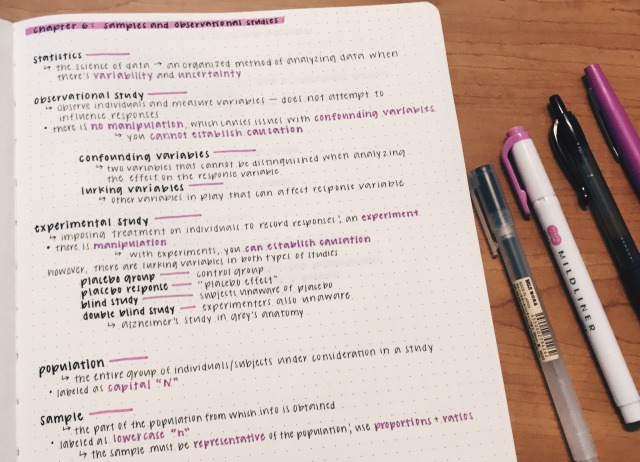 chapter 6: samples and observational studies
statistics
↳ the science of data → an organized method of analyzing data when
there's variability and uncertainty
observational study
↳ observe individuals and measure variables — does not attempt to
influence responses
• there is no manipulation, which causes issues with confounding variables
↳ you cannot establish causation
confounding variables
↳ two variables that cannot be distinguished when analyzing
the effect on the response variable
lurking variables
↳ other variables in play that can affect response variable
experimental study
↳ imposing treatment on individuals to record responses; an experiment
• there is manipulation
↳ with experiments, you can establish causation
however, there are lurking variables in both types of studies
placebo group — control group
placebo response — "placebo effect"
blind study — subjects unaware of placebo
double blind study — experimenters also unaware
↳ alzheimer's study in grey's anatomy
population
↳ the entire group of individuals/subjects under consideration in a study
• labeled as capital "N"
sample
↳ the part of the population from which info is obtained
• labeled as lowercase "n"
↳ the sample must be representative of the population; use proportions + ratios
MILDLINER